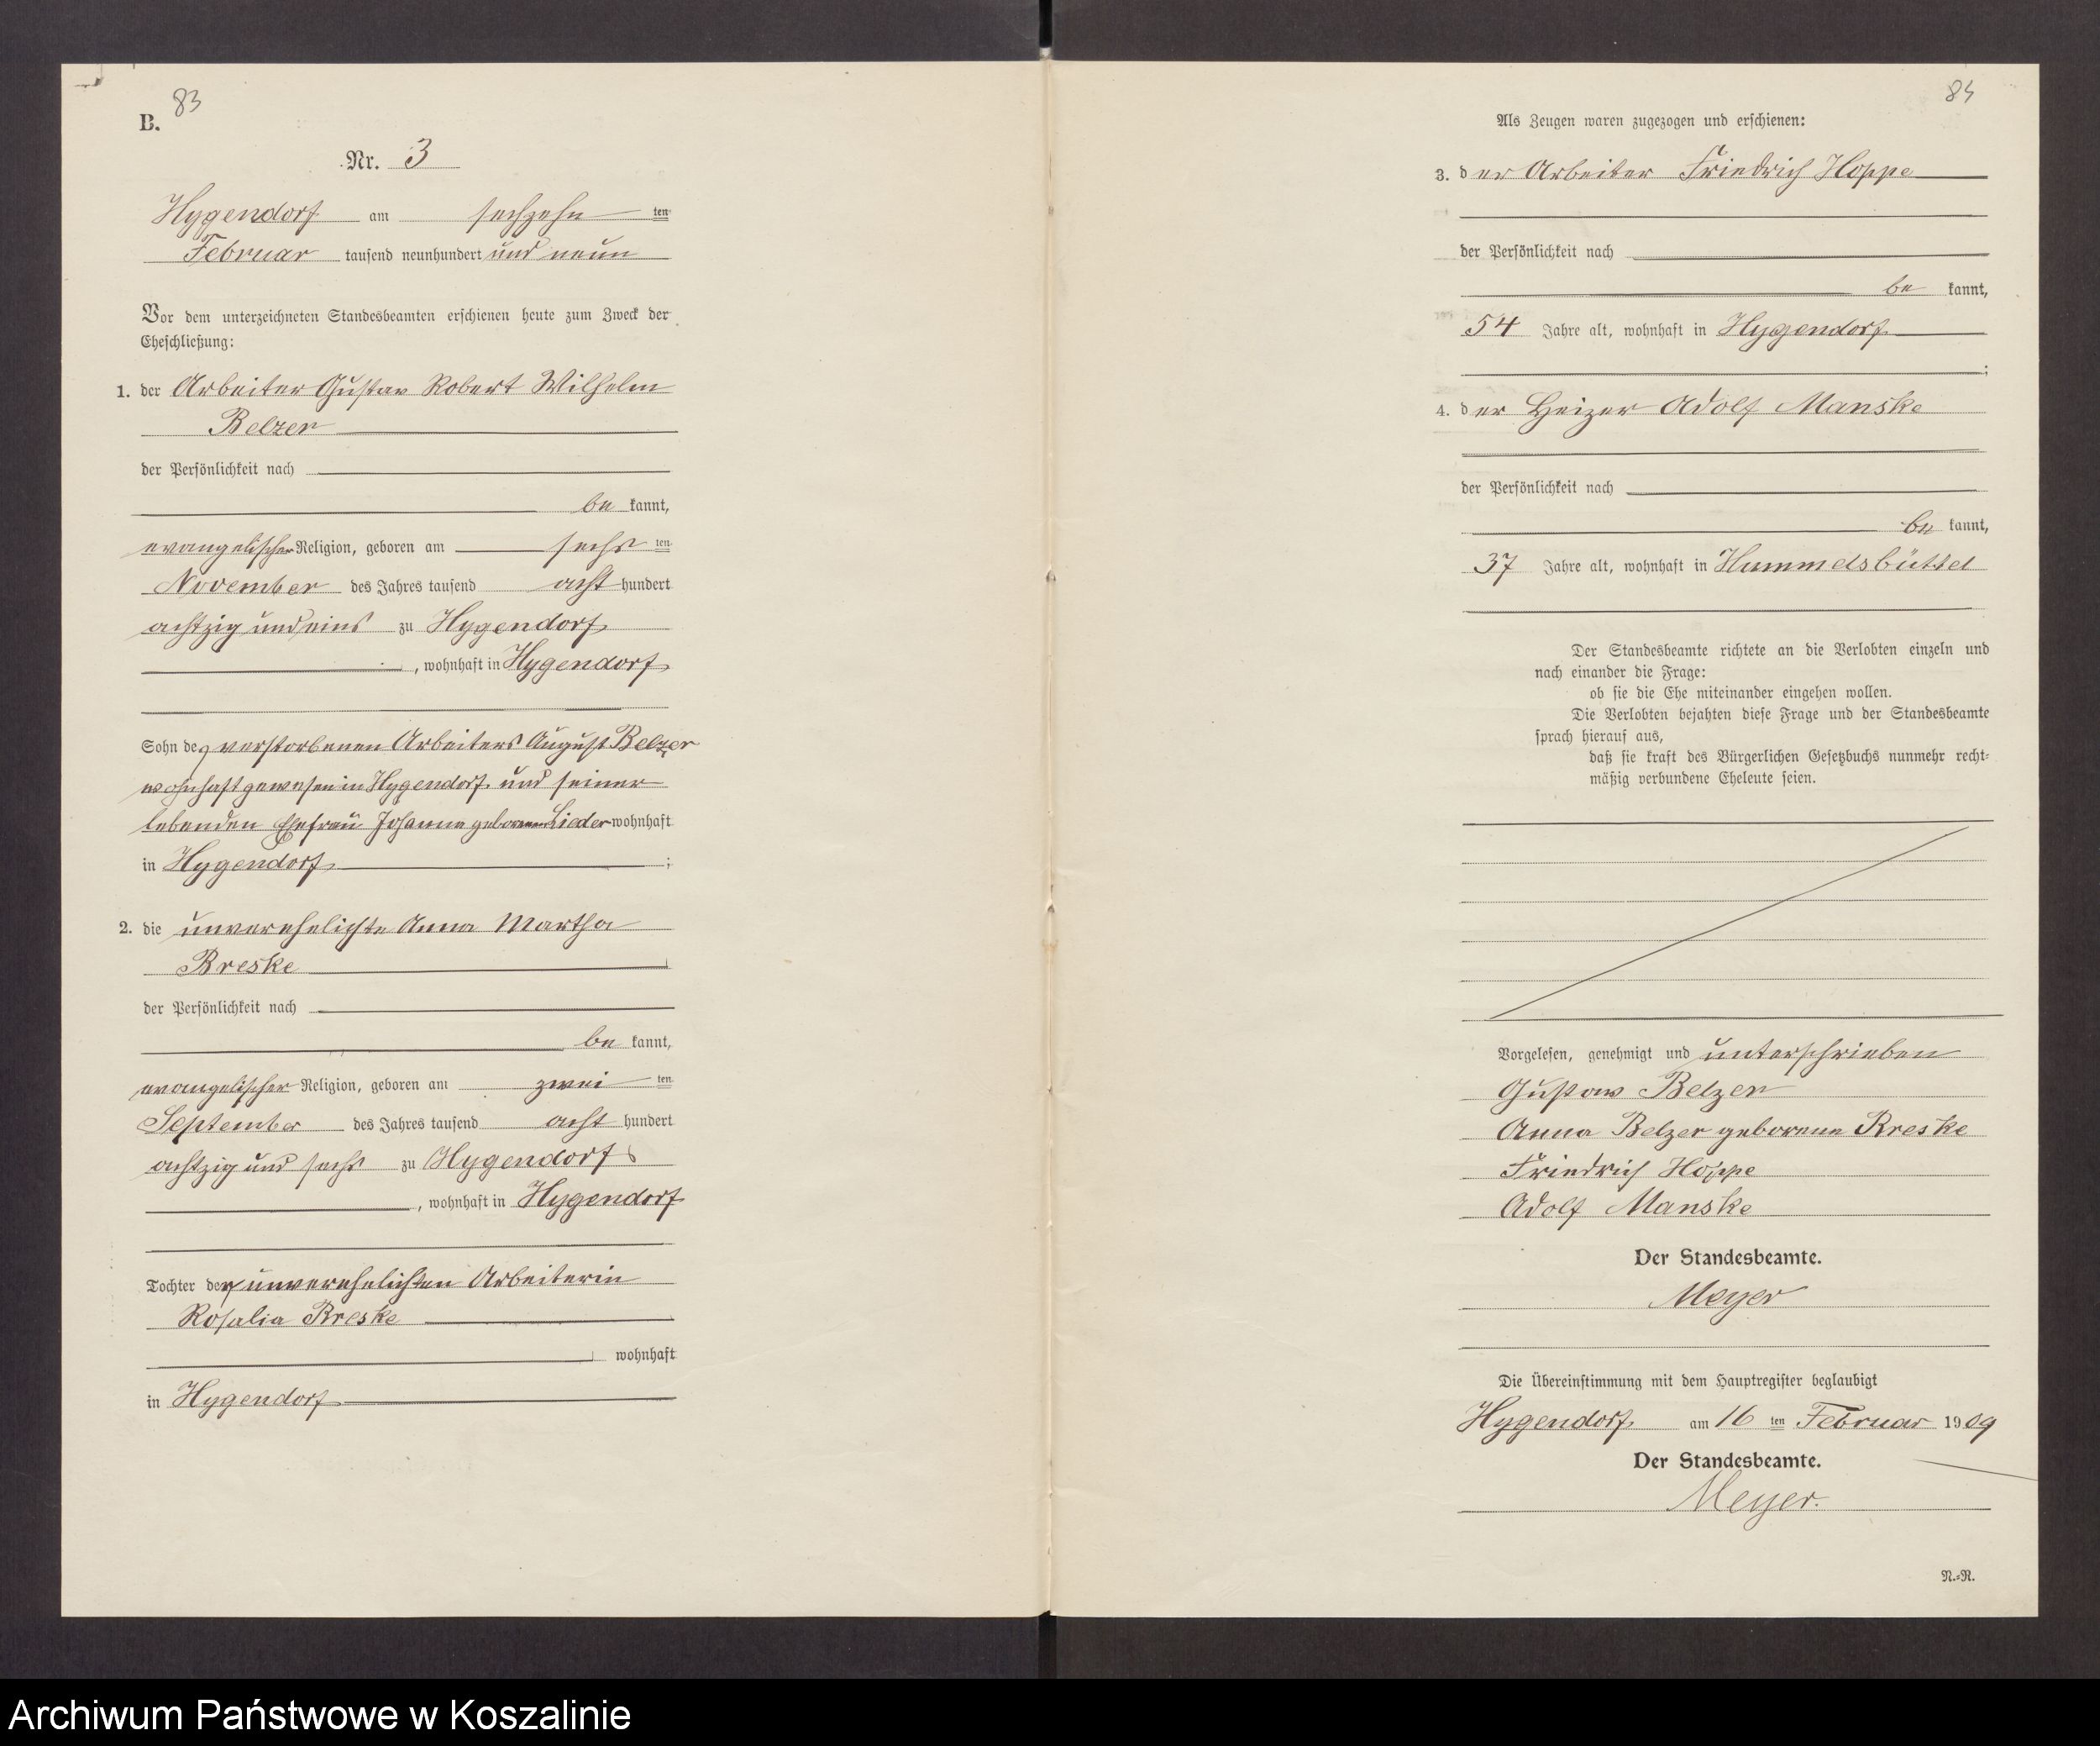 83
B.
Nr. 3
Hygendorf am sechzehn ten
Februar tausend neunhundert und neun
Vor dem unterzeichneten Standesbeamten erschienen heute zum Zweck der
Eheschließung:
1. der Arbeiter Gustav Robert Wilhelm
Belzer
der Persönlichkeit nach
be kannt,
evangelischer Religion, geboren am sechs ten
November des Jahres tausend acht hundert
achtzig und eins zu Hygendorf
, wohnhaft in Hygendorf
Sohn des verstorbenen Arbeiters August Belzer
wohnhaft gewesen in Hygendorf und seiner
lebenden Ehefrau Johanna geborenen Lieder wohnhaft
in Hygendorf ;
2. die unverehelichte Anna Martha
Breske
der Persönlichkeit nach
be kannt,
evangelischer Religion, geboren am zwei ten
September des Jahres tausend acht hundert
achtzig und sechs zu Hygendorf
, wohnhaft in Hygendorf
Tochter der unverehelichten Arbeiterin
Rosalia Breske
wohnhaft
in Hygendorf
84
Als Zeugen waren zugezogen und erschienen:
3. der Arbeiter Friedrich Hoppe
der Persönlichkeit nach
be kannt,
54 Jahre alt, wohnhaft in Hygendorf
;
4. der Heizer Adolf Manske
der Persönlichkeit nach
be kannt,
37 Jahre alt, wohnhaft in Hummelsbüttel
Der Standesbeamte richtete an die Verlobten einzeln und
nach einander die Frage:
ob sie die Ehe miteinander eingehen wollen.
Die Verlobten bejahten diese Frage und der Standesbeamte
sprach hierauf aus,
daß sie kraft des Bürgerlichen Gesetzbuchs nunmehr recht-
mäßig verbundene Eheleute seien.
Vorgelesen, genehmigt und unterschrieben
Gustav Belzer
Anna Belzer geborene Breske
Friedrich Hoppe
Adolf Manske
Der Standesbeamte.
Meyer
Die Übereinstimmung mit dem Hauptregister beglaubigt
Hygendorf am 16 ten Februar 1909
Der Standesbeamte.
Meyer.
N.-R.
Archiwum Państwowe w Koszalinie